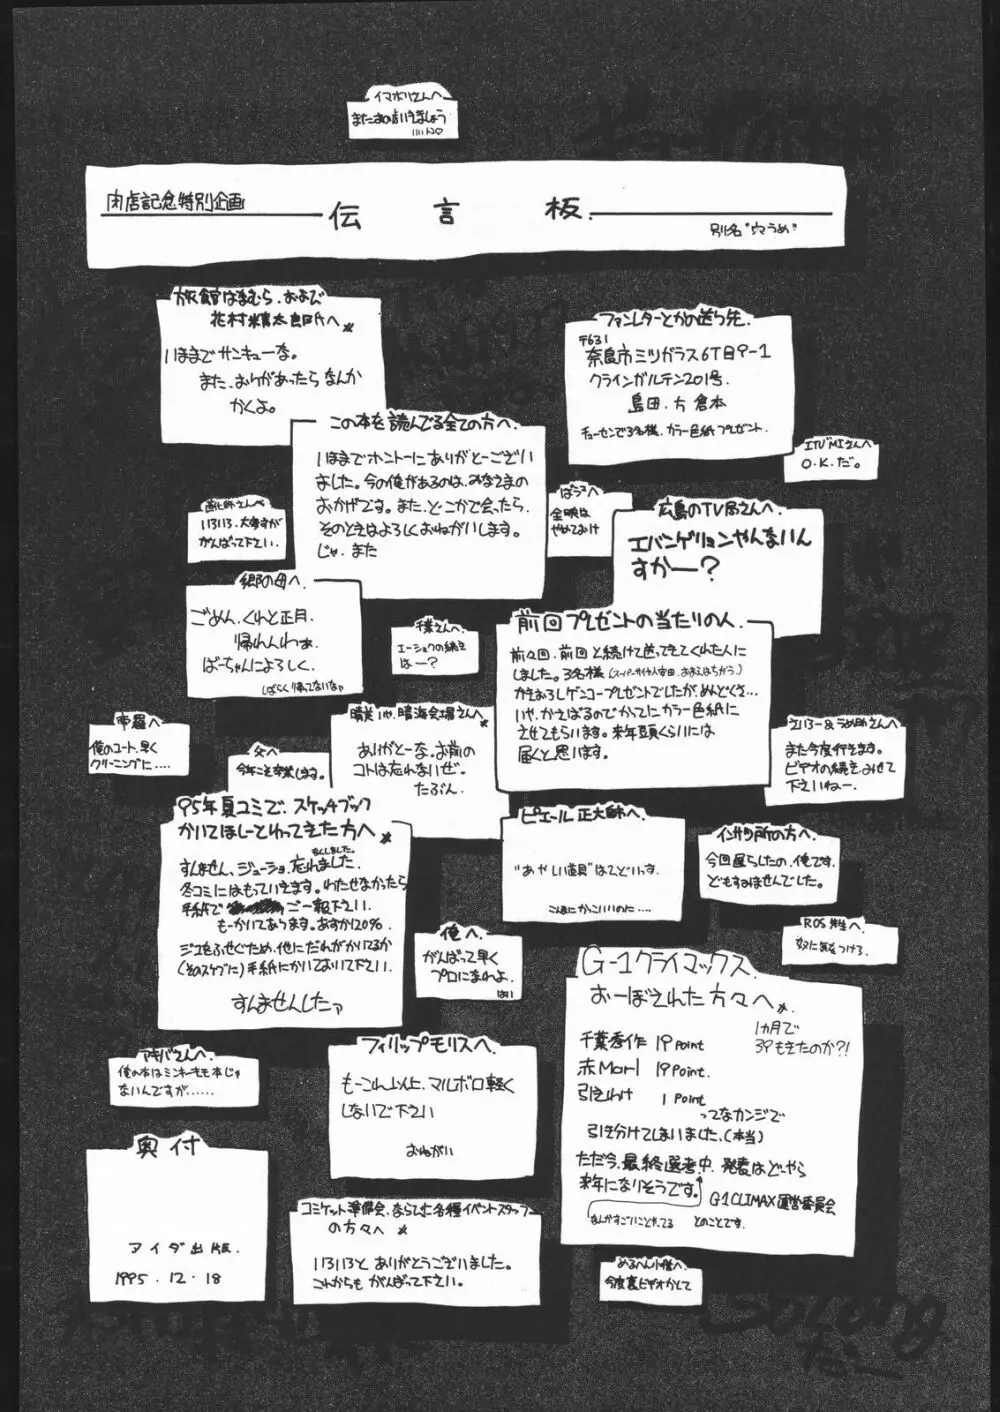 イマホリさんへ
またあの店いきましょう
肉店記念特別企画
伝言板
別名"穴うめ"
旅館はなむら、および
花村
いままでサンキューな。
また、おりがあったらなんか
かくよ。
ファンレターとかの送り先
〒631
奈良市ミツガラス6丁目9-1
クラインガルテン201号
島田 方 倉本
チューセンで3名様、カラー色紙プレゼント。
この本を読んでる全ての方へ
いままでホントーにありがとーござい
ました。今の俺があるのは、みなさまの
おかげです。また、どこかで会ったら、
そのときはよろしくおねがいします。
じゃ、また
さんへ
O.K.だ。
いろいろ、大変すが
がんばって下さい。
金は
やめておけ
広島のTV局さんへ
エバンゲリョンやんないん
すかー?
郷の母へ
ごめん、くれと正月、
帰れんわぁ
ばーちゃんによろしく。
しばらく帰ってないなァ
千葉さんへ
の続き
はー?
前回プレゼントの当たりの人
前々回、前回と続けて送ってきてくれた人に
しました。3名様
かきおろしゲンコープレゼントでしたが、めんどくさ…
いや、かさばるのでかってにカラー色紙に
させてもらいます。来年頭くらいには
届くと思います。
帝羅へ
俺のコート、早く
クリーニングに‥‥
父へ
今年こそ卒業します。
晴美いや、晴海会場さんへ
ありがとーな、お前の
コトは忘れないぜ。
たぶん。
さんへ
また今度行きます。
ビデオの続き、みせて
下さいねー
95年夏コミで、スケッチブック
かいてほしーとわってきた方へ
すんません、ジューショ、忘れました。
なくしました。
冬コミにはもっていきます。わたせなかったら
手紙で ご一報下さい。
もーかいてあります。あすか120%
ジエをふせぐため、他にだれがかいてるか
(そのスケブに)手紙にかいておいて下さい。
すんませんしたァ
ピエール正大師へ
"あやしい道具"はてどいっす。
こんなにかっこいいのに‥‥
インサツ所の方へ
今回遅らしたの、俺です。
どもすみませんでした。
ROS先生へ
に気をつけろ。
俺へ
がんばって早く
プロになれよ。
はい
G-1クライマックス
おーぼされた方々へ
1カ月で
39もきたのか?!
千葉秀作 19Point
赤Marl 19Point.
引きわけ 1Point
ってなカンジで
引き分けてしまいました。(本当)
ただ今、最終選考中、発表はどーやら
来年になりそうです。
G-1 CLIMAX運営委員会
なんかすごいことやってる とのことです。
アキバさんへ
俺の本はミンキーモモ本じゃ
ないんですが……
フィリップモリスへ
もーこれ以上、マルボロ軽く
しないで下さい
おねがい
奥付
アイダ出版
1995.12.18
コミケット準備会、ならびに各種イベントスタッフ
の方々へ
いろいろと、ありがとうございました。
これからもがんばって下さい。
めるへん小僧へ
今度裏ビデオかして
So Long
だー